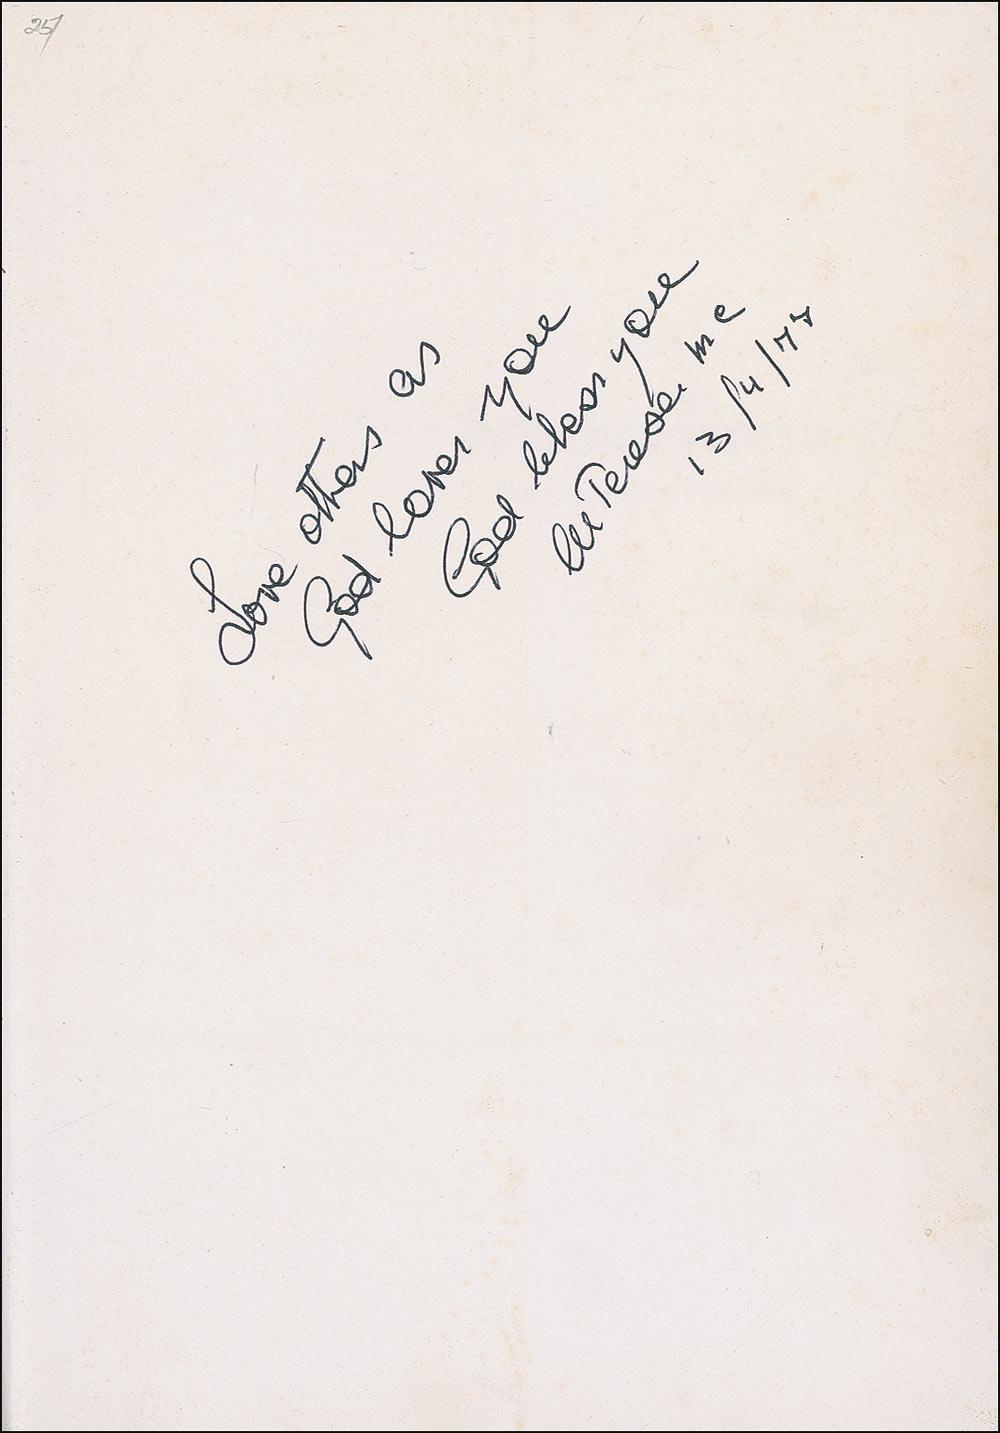 25/
Love others as
God loves you
God bless you
M Teresa mc
13/4/77